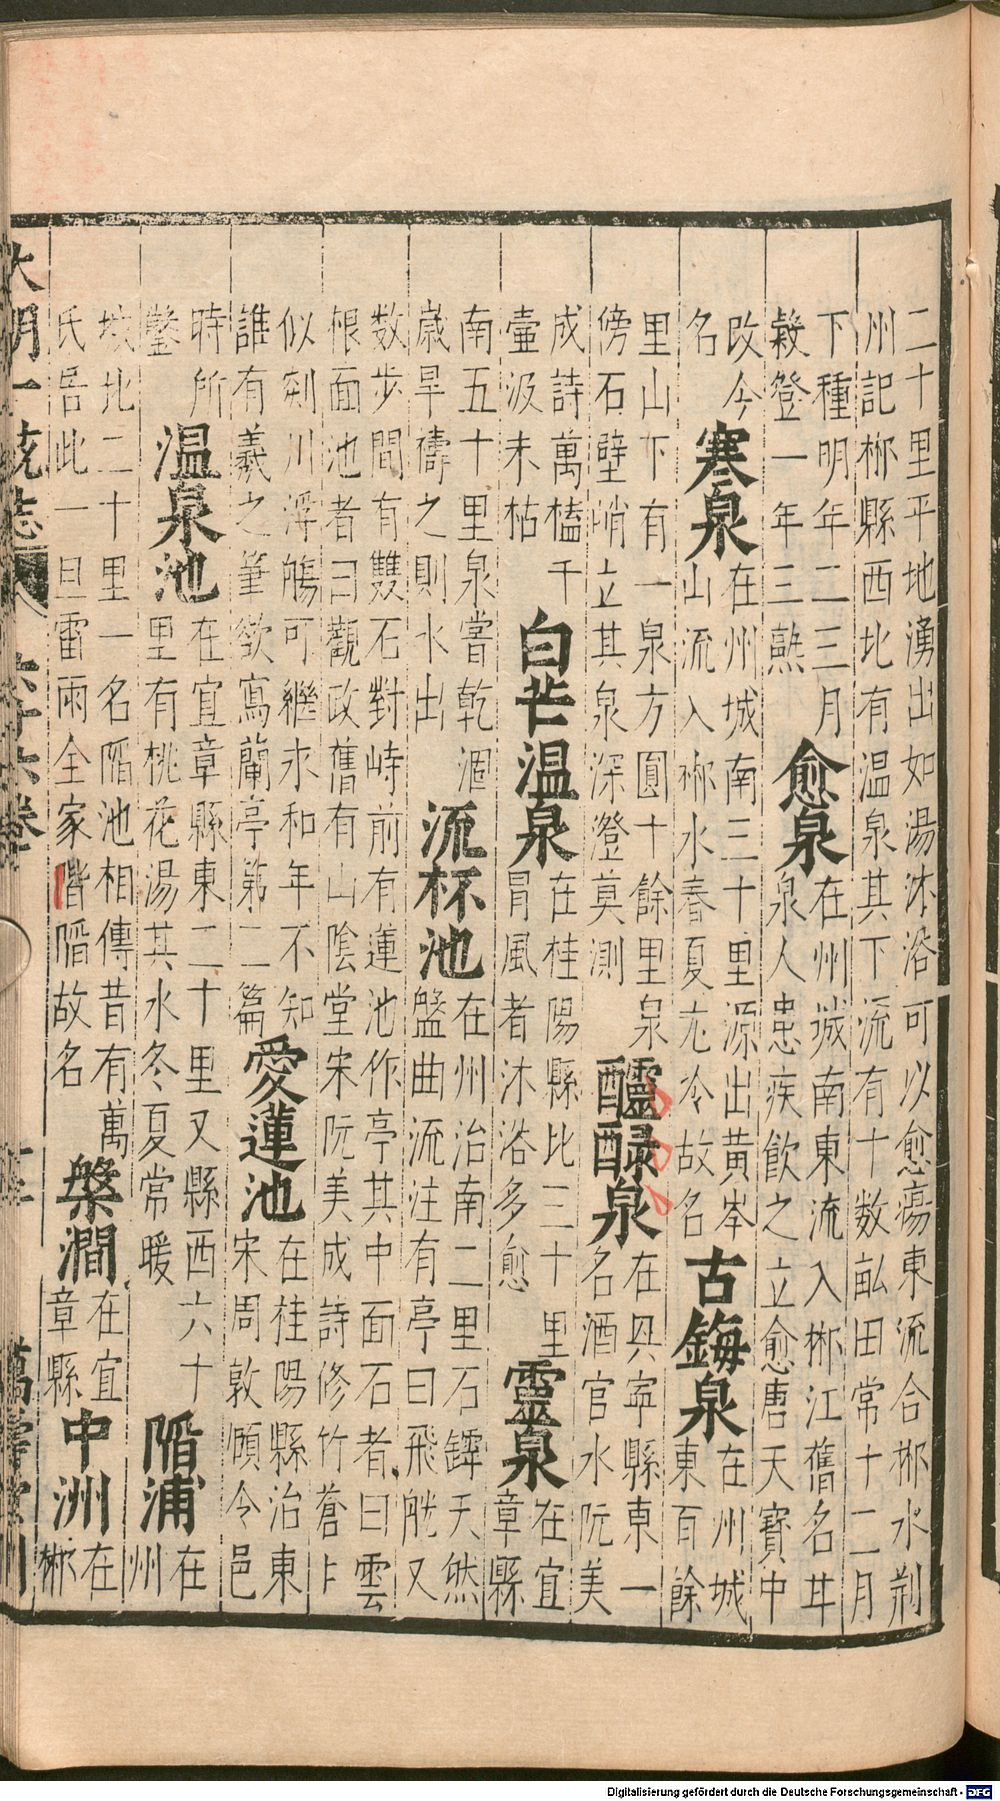 二十里平地湧出如湯沐浴可以愈瘍東流合郴水荆
州記郴縣西北有温泉其下流有十数畝田常十二月
下種明年二三月
穀登一年三熟
愈泉
在州城南東流入郴江舊名丼
泉人患疾飲之立愈唐天寶中
改今
名
寒泉
在州城南三十里源出黃岑
山流入郴水春夏尤冷故名
古鋂泉
在州城
東百餘
里山下有一泉方圓十餘里泉
傍石壁峭立其泉深澄莫測
醽醁泉
在興寧縣東一
名酒官水阮美
成詩萬榼千
壷汲未枯
白芒温泉
在桂陽縣北三十里
冒風者沐浴多愈
靈泉
在宜
章縣
南五十里泉嘗乾涸
歳旱禱之則水出
流杯池
在州治南二里石罅天然
盤曲流注有亭曰飛觥又
数步間有雙石對峙前有蓮池作亭其中面石者曰雲
根面池者曰觀政舊有山陰堂宋阮美成詩修竹蒼
似剡川浮觴可繼永和年不知
誰有羲之筆欲寫蘭亭第二篇
愛蓮池
在桂陽縣治東
宋周敦頤令邑
時所
鑿
温泉池
在宜章縣東二十里又縣西六十
里有桃花湯其水冬夏常暖
陷浦
在
州
城北二十里一名陷池相傳昔有萬
氏居此一旦雷雨全家皆陷故名
槃澗
在宜
章縣
中洲
在
郴
大明一統志 六十六卷 萬壽堂刊
Digitalisierung gefördert durch die Deutsche Forschungsgemeinschaft - DFG